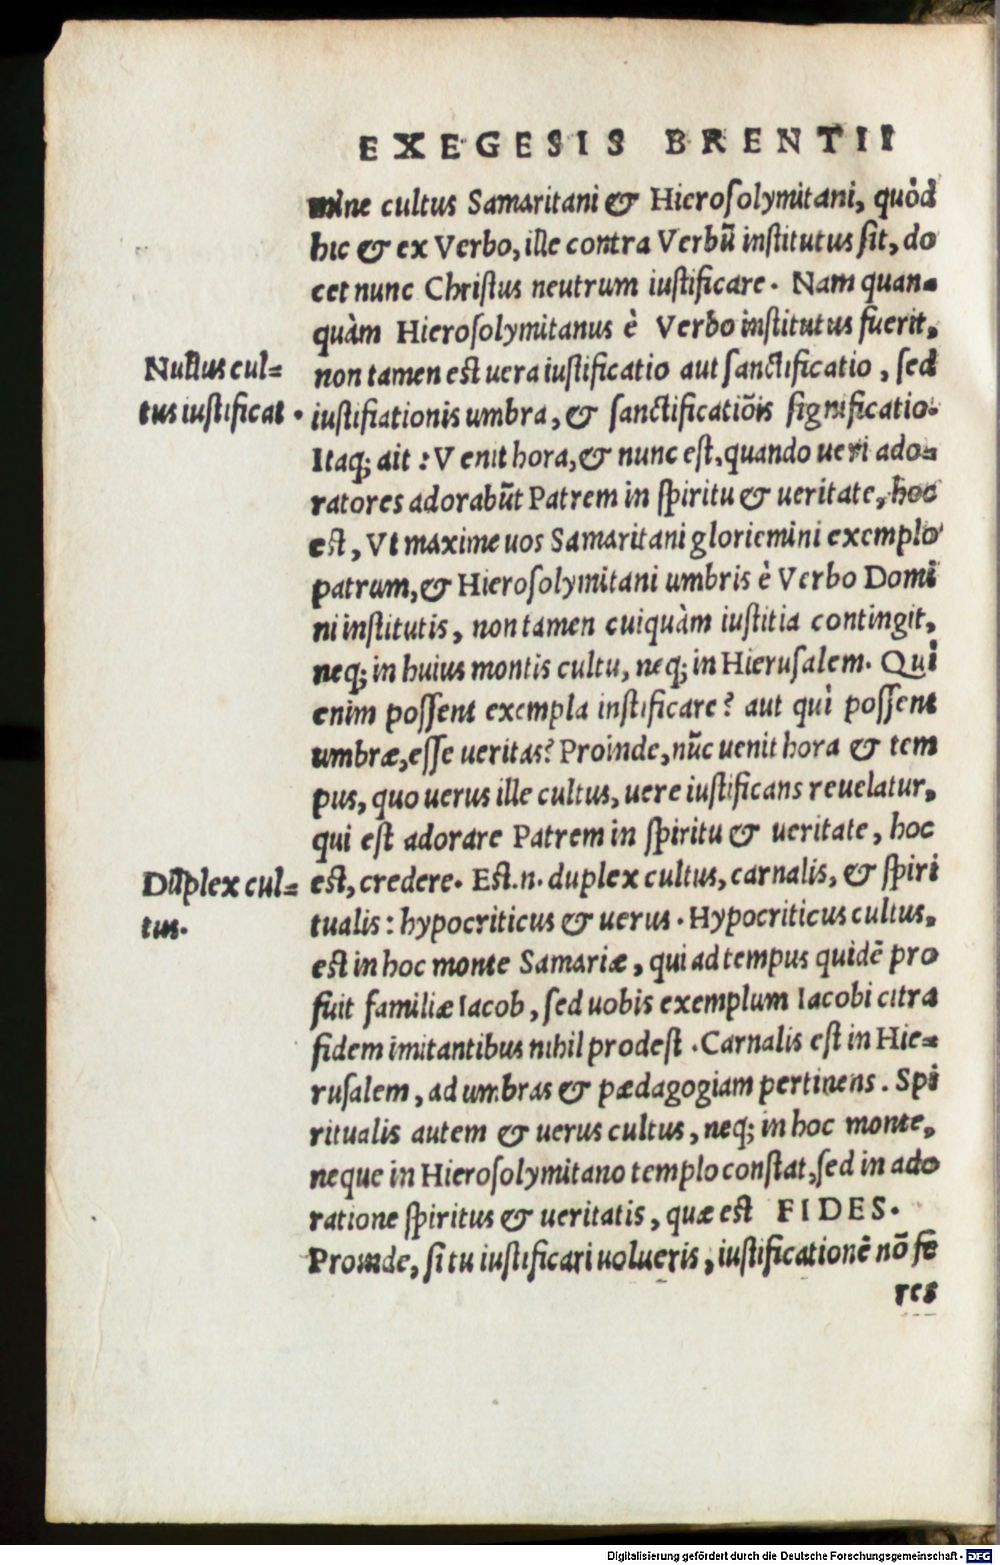 EXEGESIS BRENTII
mine cultus Samaritani & Hierosolymitani, quòd
hic & ex Verbo, ille contra Verbū institutus sit, do
cet nunc Christus neutrum iustificare. Nam quan=
quàm Hierosolymitanus è Verbo institutus fuerit,
Nullus cul=
tus iustificat.
non tamen est uera iustificatio aut sanctificatio, sed
iustifiationis umbra, & sanctificatiōis significatio.
Itaq; ait: Venit hora, & nunc est, quando ueri ado=
ratores adorabūt Patrem in spiritu & ueritate, hoc
est, Vt maxime uos Samaritani gloriemini exemplo
patrum, & Hierosolymitani umbris è Verbo Domi
ni institutis, non tamen cuiquàm iustitia contingit,
neq; in huius montis cultu, neq; in Hierusalem. Quì
enim possent exempla iustificare? aut quì possent
umbræ, esse ueritas? Proinde, nūc uenit hora & tem
pus, quo uerus ille cultus, uere iustificans reuelatur,
qui est adorare Patrem in spiritu & ueritate, hoc
Duplex cul=
tus.
est, credere. Est.n. duplex cultus, carnalis, & spiri
tualis: hypocriticus & uerus. Hypocriticus cultus,
est in hoc monte Samariæ, qui ad tempus quidē pro
fuit familiæ Iacob, sed uobis exemplum Iacobi citra
fidem imitantibus nihil prodest. Carnalis est in Hie=
rusalem, ad umbras & pædagogiam pertinens. Spi
ritualis autem & uerus cultus, neq; in hoc monte,
neque in Hierosolymitano templo constat, sed in ado
ratione spiritus & ueritatis, quæ est FIDES.
Proinde, si tu iustificari uolueris, iustificationē nō fe
res
Digitalisierung gefördert durch die Deutsche Forschungsgemeinschaft - DFG